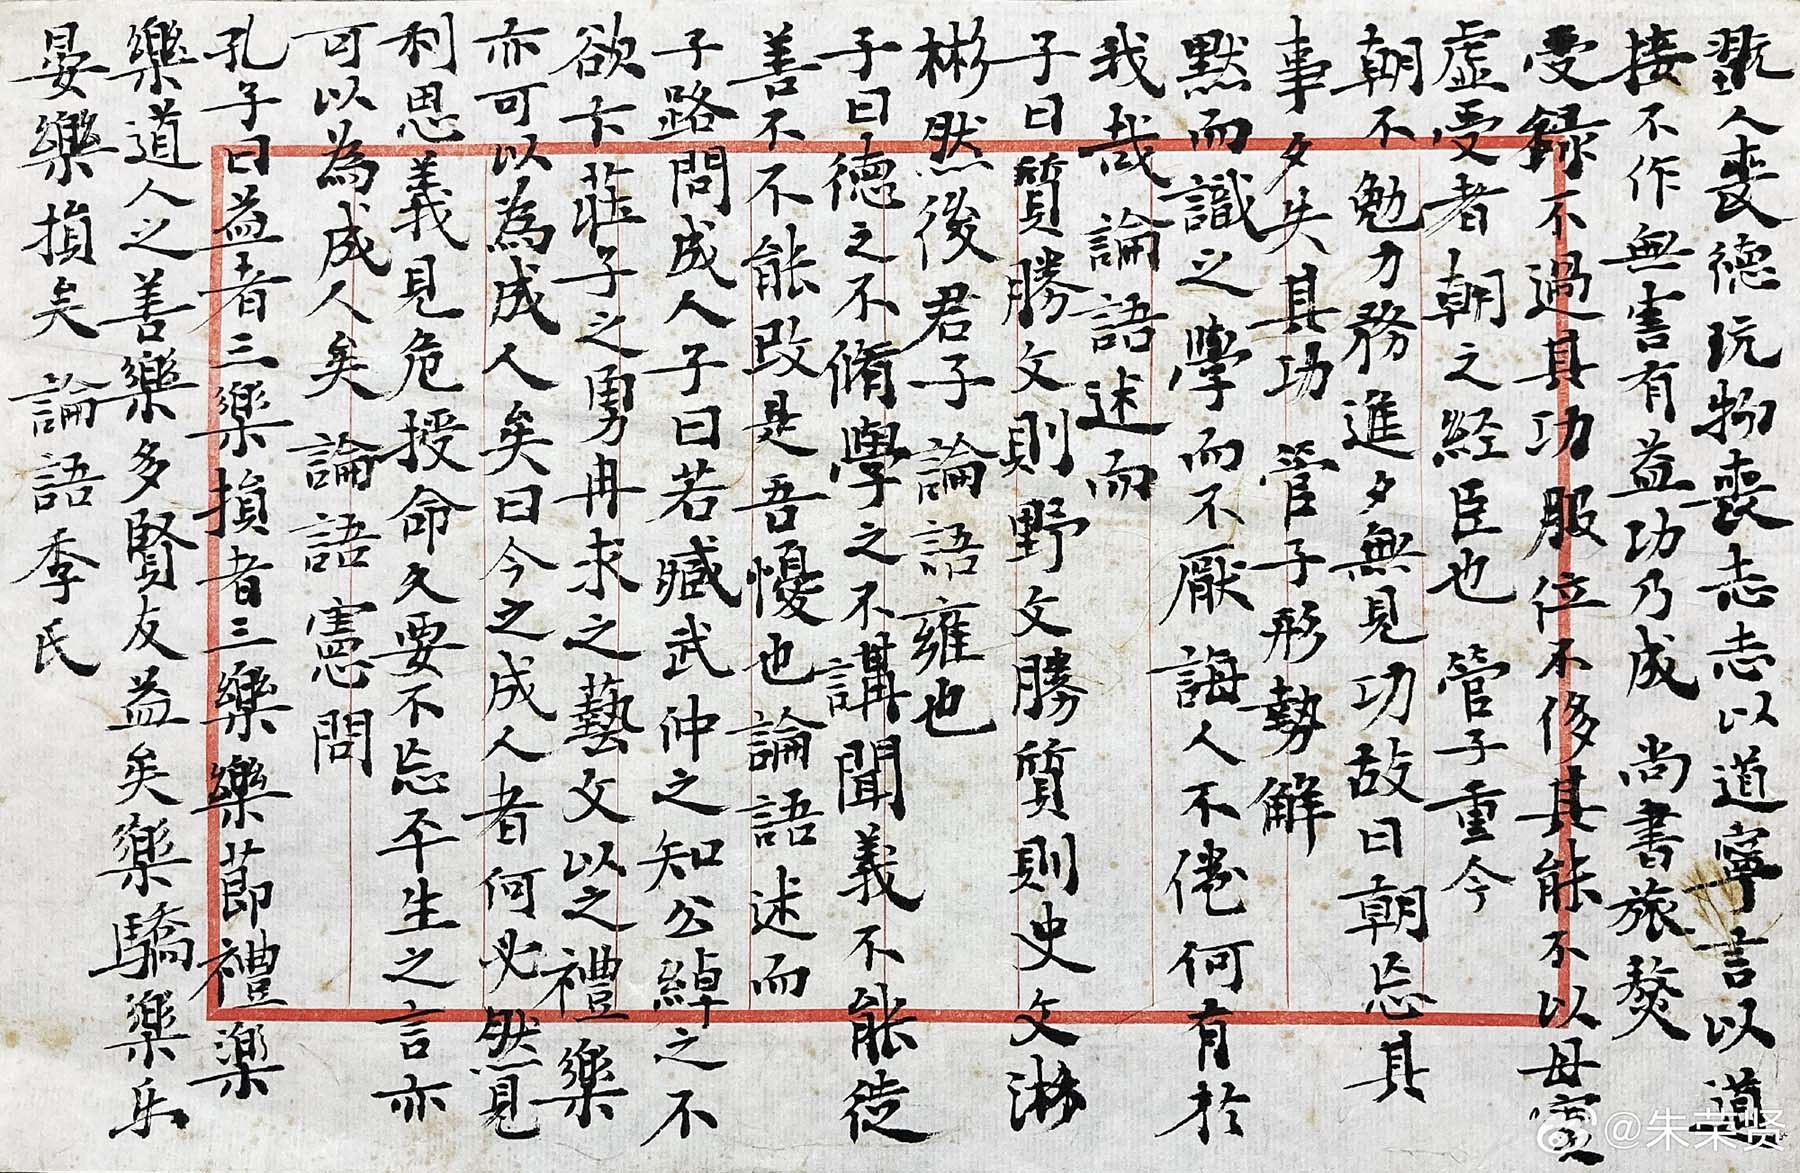 翫人喪德玩物喪志志以道寧言以道
接不作無害有益功乃成 尚書旅獒
受録不過其功服位不侈其能不以毋實
虛受者朝之經臣也 管子重令
朝不勉力務進夕無見功故曰朝忘其
事夕失其功 管子形勢解
默而識之學而不厭誨人不倦何有於
我哉 論語述而
子曰質勝文則野文勝質則史文淋
彬然後君子 論語雍也
子曰德之不脩學之不講聞義不能徙
善不不能改是吾憂也 論語述而
子路問成人子曰若臧武仲之知公綽之不
欲卞莊子之勇冉求之藝文以之禮樂
亦可以為成人矣曰今之成人者何必然見
利思義見危授命久要不忘平生之言亦
可以為成人矣 論語憲問
孔子曰益者三樂損者三樂樂節禮樂
樂道人之善樂多賢友益矣樂驕樂乐
晏樂損矣 論語季氏
@朱荣贤